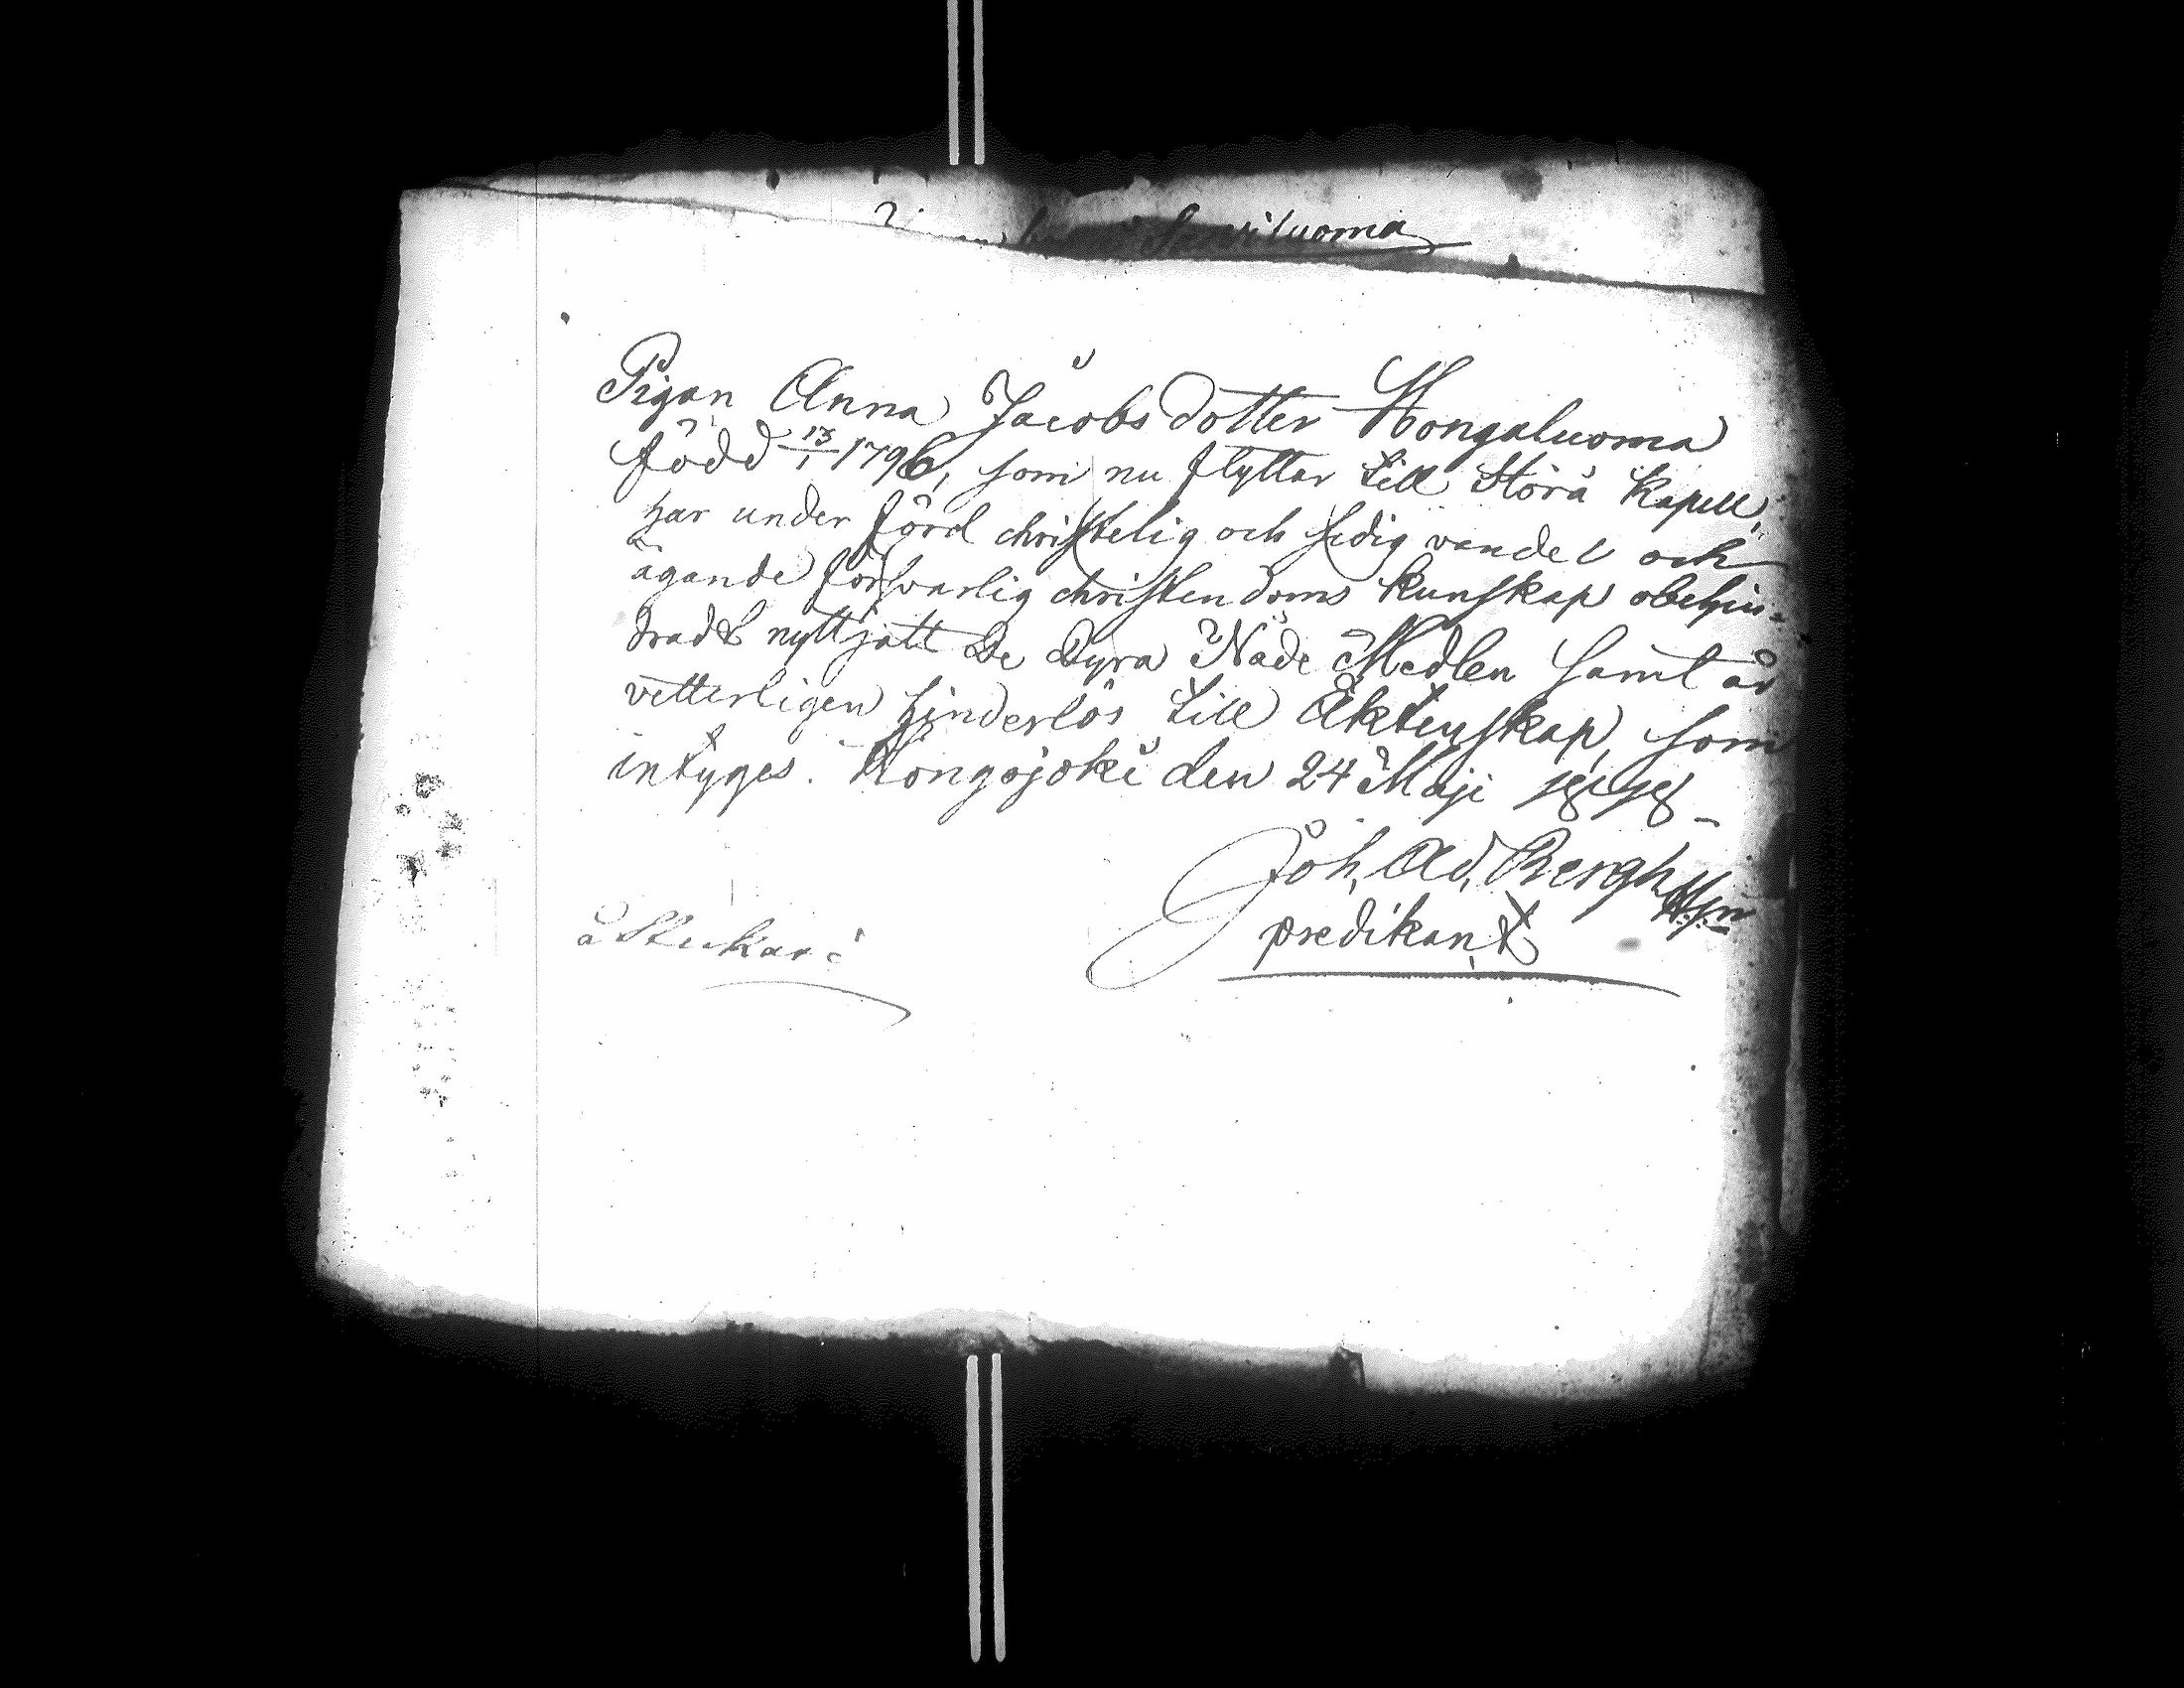 Saviluoma
Pigan Anna Jacobsdotter Hongaluoma
född 13/1 1796, som nu flyttar till Storå Kapell,
har under förd christelig och sedig vandel och
ägande försvarlig christendoms kunskap obehin-
dradt nyttjatt De Dyra Nåde Medlen samt är
vetterligen hinderlös till Äktenskap, som
intyges. Hongojoki den 24 Maji
Joh. Ad. Bergh
predikant
å